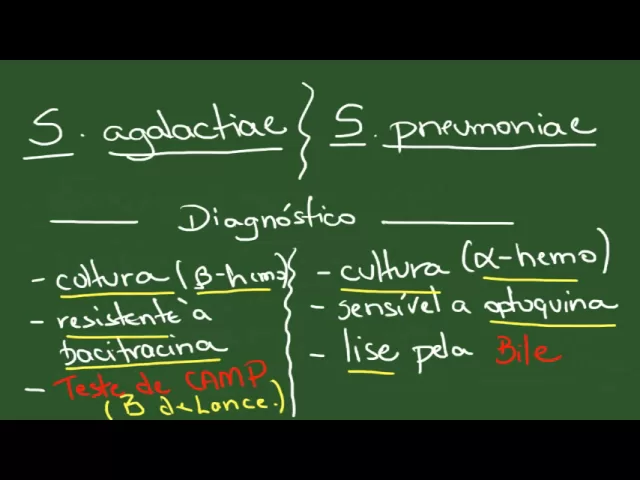 S. agalactiae
S. pneumoniae
Diagnóstico
- cultura (β-hemo)
- resistente à
bacitracina
- Teste de CAMP
(B de Lance.)
- cultura (α-hemo)
- sensível a optoquina
- lise pela Bile